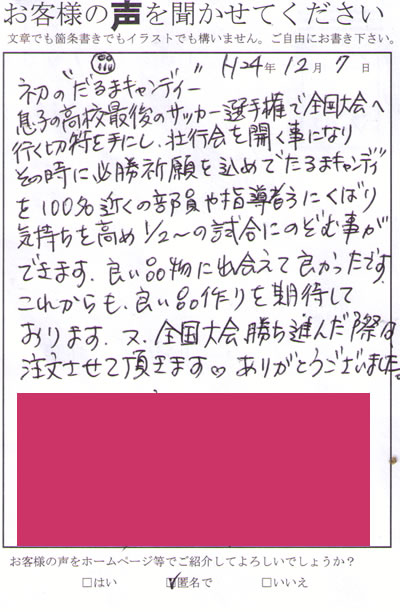 お客様の声を聞かせてください
文章でも箇条書きでもイラストでも構いません。ご自由にお書き下さい。
H24年 12月 7日
初の"だるまキャンディー"
息子の高校最後のサッカー選手権で全国大会へ
行く切符を手にし、壮行会を開く事になり
その時に必勝祈願を込めてだるまキャンディ
を100名近くの部員や指導者らにくばり
気持ちを高め1/2〜の試合にのぞむ事が
できます。良い品物に出会えて良かったです。
これからも、良い品作りを期待して
おります。又、全国大会勝ち進んだ際は
注文させて頂きます♡ ありがとうございました。
お客様の声をホームページ等でご紹介してよろしいでしょうか？
□はい ☑匿名で □いいえ